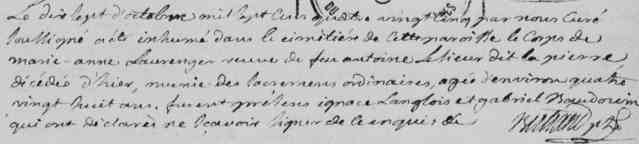 Le dix sept d'octobre mil sept cens quatre vingt cinq par nous Curé
soussigné a été inhumé dans le cimetière de Cette paroisse le Corps de
marie-anne Laurenger veuve de feu antoine Lesieur dit la pierre
décédée d'hier, munie des sacremens ordinaires, agée d'environ quatre
vingt huit ans. furent présens ignace Langlois et gabriel Baudouin
qui ont déclarés ne sçavoir signer de ce enquis &c